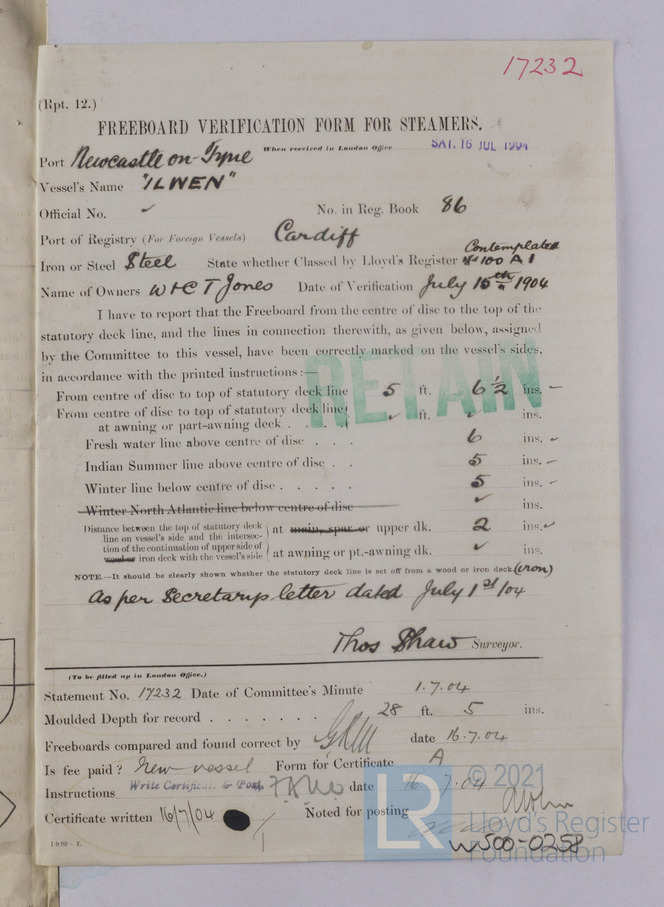 17232
(Rpt. 12.)
FREEBOARD VERIFICATION FORM FOR STEAMERS.
When received in London Office SAT. 16 JUL 1904
Port Newcastle on-Tyne
Vessel's Name "ILWEN"
Official No. ✓ No. in Reg. Book 86
Port of Registry (For Foreign Vessels) Cardiff
Contemplated
Iron or Steel Steel State whether Classed by Lloyd's Register 100 A 1
Name of Owners W & C T Jones Date of Verification July 15th 1904
I have to report that the Freeboard from the centre of disc to the top of the
statutory deck line, and the lines in connection therewith, as given below, assigned
by the Committee to this vessel, have been correctly marked on the vessel's sides,
in accordance with the printed instructions :—
RETAIN
From centre of disc to top of statutory deck line 5 ft. 6 1/2 ins. –
From centre of disc to top of statutory deck line
at awning or part-awning deck . . ✓ ft. ✓ ins.
Fresh water line above centre of disc . . . 6 ins. –
Indian Summer line above centre of disc . . 5 ins. –
Winter line below centre of disc . . . . . 5 ins. –
Winter North Atlantic line below centre of disc ✓ ins.
Distance between the top of statutory deck
line on vessel's side and the intersec-
tion of the continuation of upper side of
wood or iron deck with the vessel's side
at main, spar or upper dk. 2 ins. ✓
at awning or pt.-awning dk. ✓ ins.
NOTE.—It should be clearly shown whether the statutory deck line is set off from a wood or iron deck (iron)
As per Secretarys letter dated July 1st/04
Thos Shaw Surveyor.
(To be filled up in London Office.)
Statement No. 17232 Date of Committee's Minute 1.7.04
Moulded Depth for record . . . . . . . 28 ft. 5 ins.
Freeboards compared and found correct by date 16.7.04
Is fee paid? New vessel Form for Certificate A
Instructions Write Certificate & Post, date 16.7.04
Certificate written 16/7/04 Noted for posting
© 2021
LR
Lloyd's Register
Foundation
W500-0258